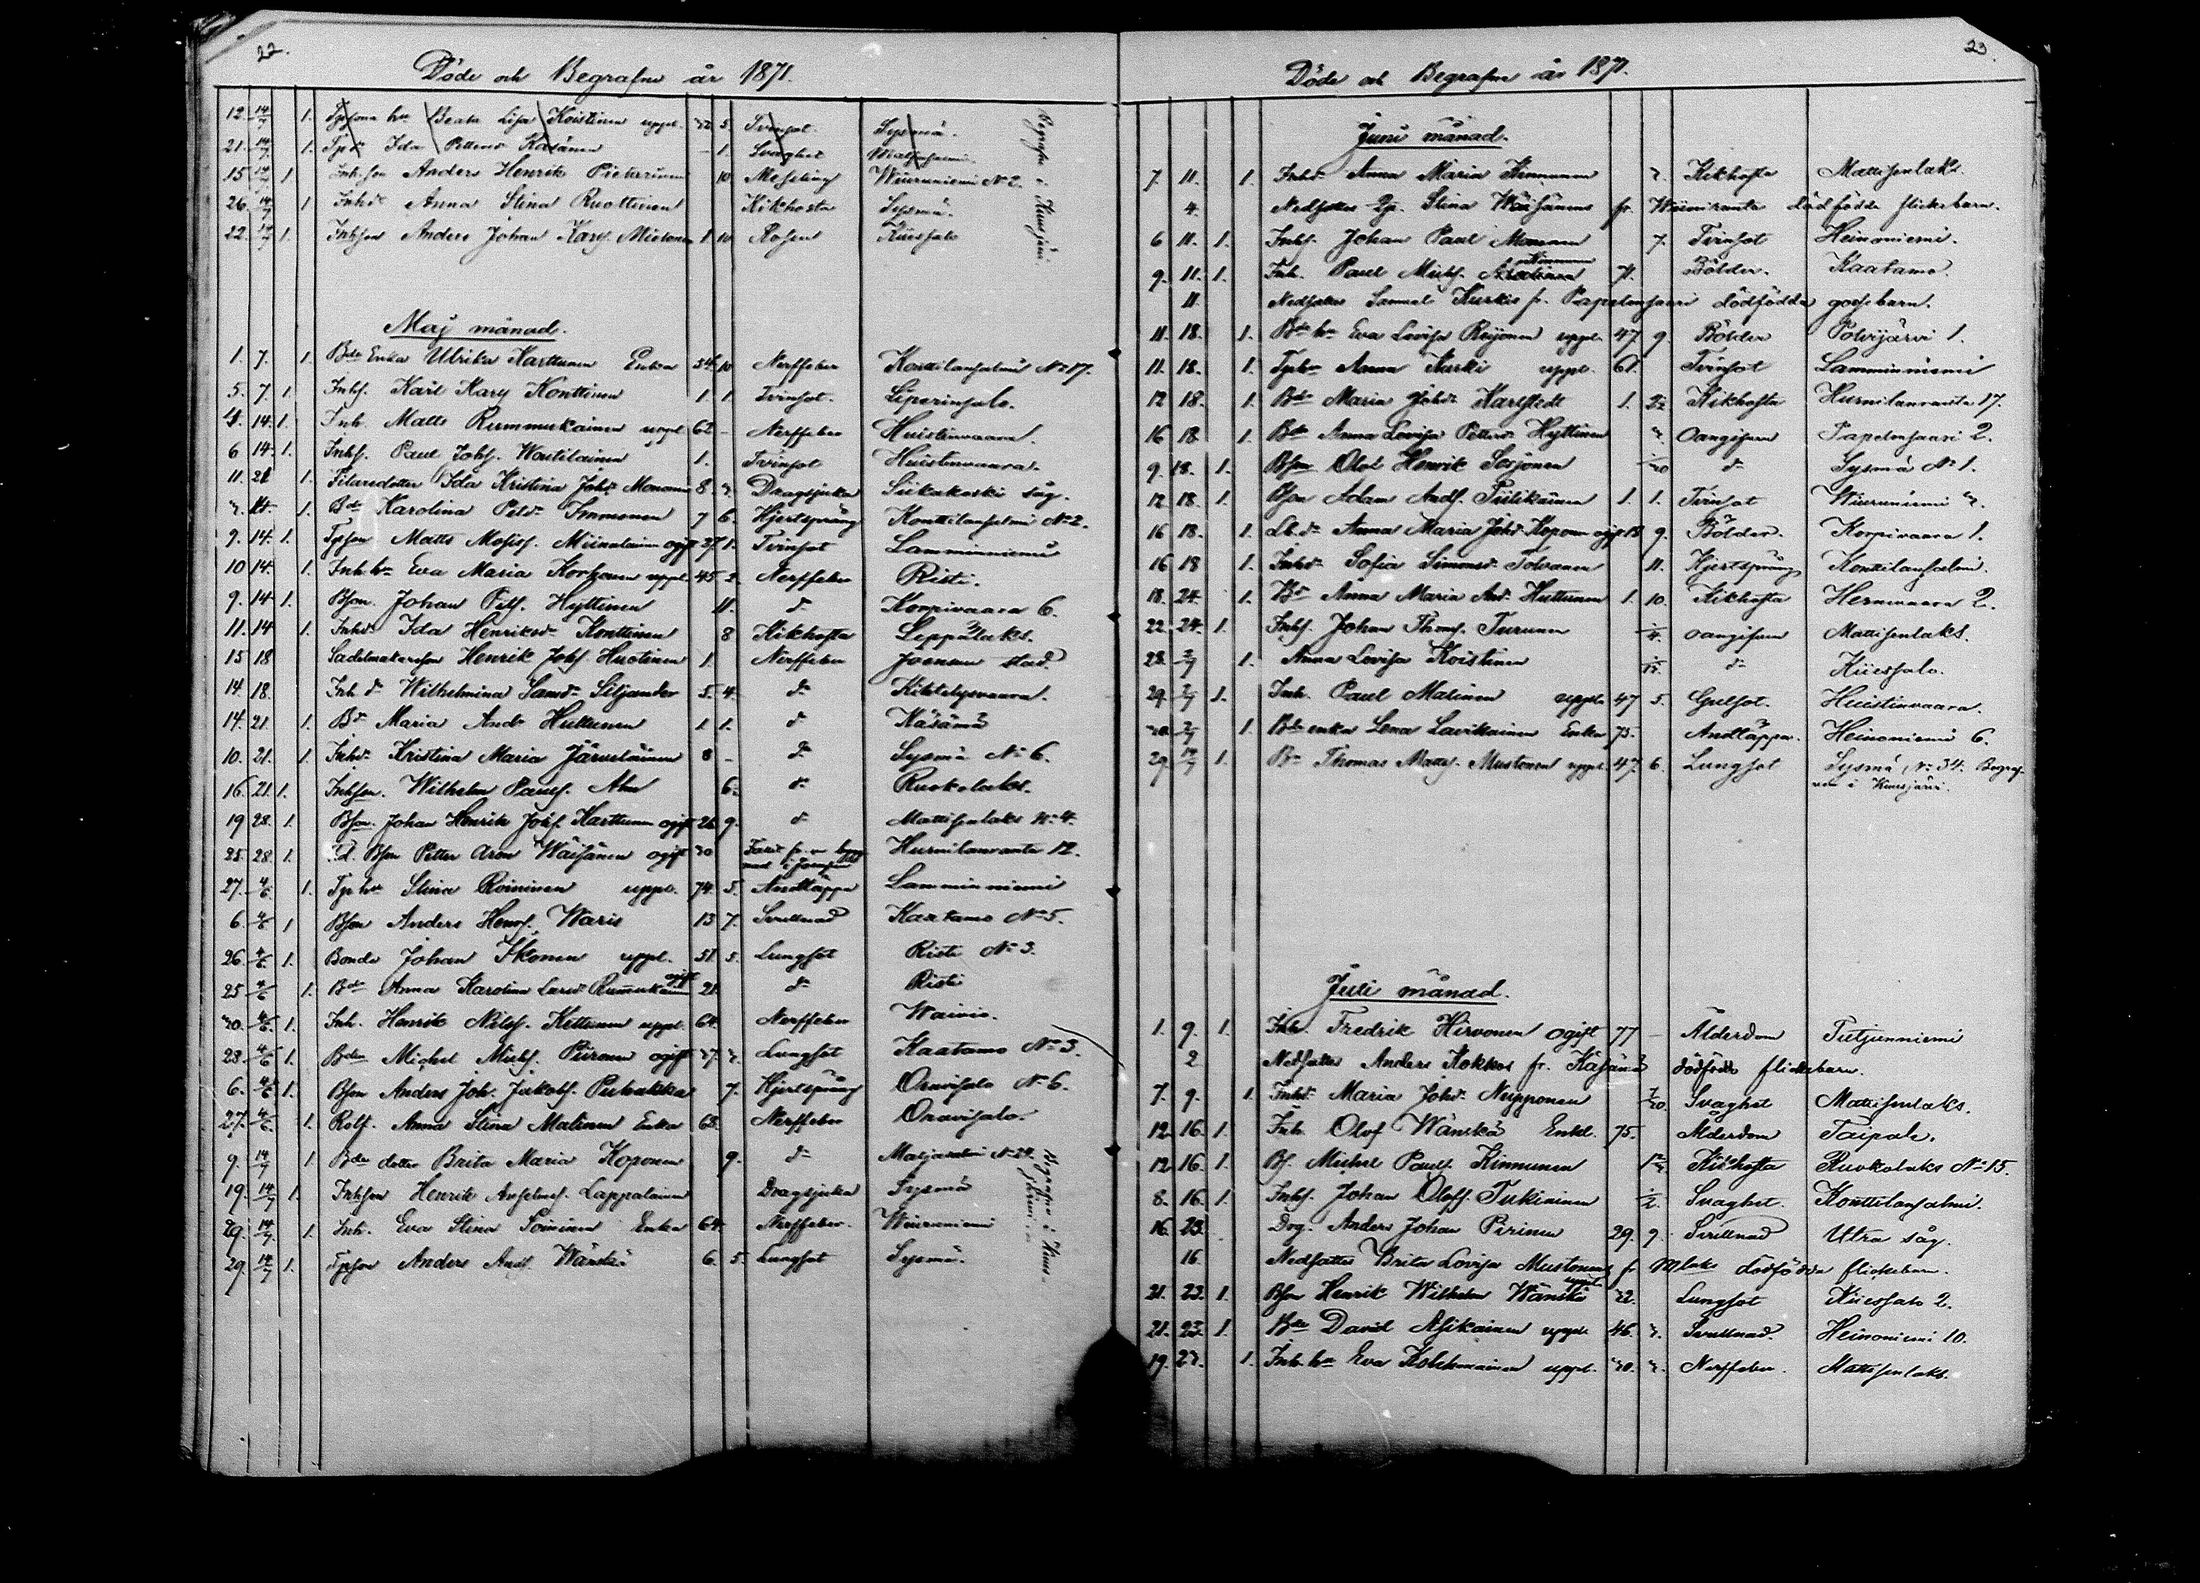 22.
Döde och Begrafne år 1871.
12. 14/7 1. hu Beata Lisa Koistinen uppl. 5. Tvinsot. Sysmä.
21. 14/7 1. Ida Petters Käsänen 1. Svaghet
15 1 Inh.son Anders Henrik Pietarinen 10 Messling Wiiruniemi No 2.
26. 14/7 1 Inhdr Anna Stina Ruottinen Kikhosta Sysmä.
22. 14/7 1. Inhson Anders Johan Karl. Mietonen 1 10 Rosen Kiiessalo
Begrafne i Kuusjärvi.
Maj månad.
1. 7. 1. Bde Enka Ulrika Karttunen Enka 54 10 Nerffeber Konttilansalmi No 17.
5. 7. 1. Inhs. Karl Karlss. Konttinen 1 1. Tvinsot. Liperinsalo.
4. 14. 1. Inh. Matts Rummukainen uppl 62 - Nerffeber Huistinvaara.
6 14. 1. Inhs. Paul Johs. Wartilainen 1. Tvinsot Huistinvaara.
11. 21 1. Filaredotter Ida Kristina Johdr Mononen 8. Dragsjuka Siikakoski såg.
14. 1. Bdr Karolina Petdr Immonen 7 6. Hjertsprång Konttilansalmi No 2.
9. 14. 1. Matts Mosiss. Miinalainen ogift 27 1. Tvinsot Lamminniemi
10 14. 1. Inh.hu Eva Maria Korhonen uppl. 45 2. Nerffeber Risti.
9. 14. 1. Bson. Johan Pets. Hyttinen 11. do Korpivaara 6.
11. 14 1. Inhdr Ida Henriksdr Konttinen 8 Kikhosta Leppälaks.
15 18 Sadelmakareson Henrik Johs. Huotinen 1. Nerffeber Joensuu stad.
14. 18. Inh dr Wilhelmina Samdr Siljander 5. 4. do Kiihtelysvaara.
14. 21 1. Bdr Maria Anddr Huttunen 1 1. do Käsämä
10. 21. 1. Inhdr Kristina Maria Järveläinen 8 - do Sysmä No 6.
16. 21. 1. Inhson. Wilhelm Pauls. Ahn 6. do Ruokolaks.
19 28. 1. Bson. Johan Henrik Johs. Karttunen ogift 26 9. do Mattisenlaks No 4.
25. 28. 1. Bson Petter Aron Wäisänen ogift 30 Hurnilanranta 12.
27. 4/6 1. Stina Roininen uppl. 74. 5. Andtäppa Lamminniemi
6. 4/6 1 Bson Anders Henrs. Waris 13 7. Svullnad Kaatamo No 5.
26. 4/6 1. Bonde Johan Ikonen uppl. 51 5. Lungsot Risti No 3.
25 4/6 1. Bdr Anna Karolina Larsdr Rummukainen ogift 21. do Risti
30. 4/6 1. Inh. Henrik Nilss. Kettunen uppl. 64. Nerffeber Waivio.
23. 4/6 1. Michel Michs. Piironen ogift 27. Lungsot Kaatamo No 3.
6. 4/6 1. Bson Anders Joh. Jakobs. Puhakka 7. Hjertsprång Onavisalo No 6.
27. 4/6 1. Rotf. Anna Stina Malinen Enka 63. Nerffeber Onavisalo.
9. 14/7 1 Bde dotter Brita Maria Koponen 9. do
19. 14/7 1. Inhson Henrik Anselms. Lappalainen Dragsjuka Sysmä
29. 14/7 1. Inh. Eva Stina Soininen Enka 64. Nerffeber. Wiiruniemi
29. 14/7 1. Anders Ands Wänskä 6. 5. Lungsot Sysmä.
Begrafne i Kuusjärvi
23.
Döde och Begrafne år 1871.
Juni månad.
7. 11. 1. Inhdr Anna Maria Kinnunen Kikhosta Mattisenlaks.
4. Nedsattes Stina Wäisänens fr. Wiiniranta dödfödde flickebarn.
6 11. 1. Inhs. Johan Paul Mononen 7. Tvinsot Heinoniemi.
9. 11. 1. Inh. Paul Michs. Kinnunen 71. Bölder. Kaatamo.
11. Nedsattes Samuel Kurkis fr. Papelonsaari dödfödda gossebarn.
11. 18. 1. Bde hu Eva Lovisa Reijonen uppl. 47 9. Bölder Polvijärvi 1.
11. 18. 1. Anna Kurki uppl. 61. Tvinsot Lamminniemi
12 18. 1. Bdr Maria Johdr Karlstedt 1. Kikhosta Hurnilanranta 17.
16 18 1. Bdr Anna Lovisa Petters Hyttinen Oangifven Papelonsaari 2.
9. 18. 1. Bson Olof Henrik Sorjonen 1/20 do Sysmä No 1.
12 18. 1. Bson Adam Ands. Piilikäinen 1. 1. Tvinsot Wiiruniemi
16 18. 1. Anna Maria Johdr Koponen ogift 18 9. Bölder. Korpivaara 1.
16 18 1. Inhdr Sofia Simonsdr Tolvanen 11. Hjertsprång Konttilansalmi.
18. 24. 1. Bdr Anna Maria And. Huttunen 1. 10. Kikhosta Hernevaara 2.
22. 24. 1. Inhs. Johan Thoms. Turunen 1/4. oangifven Mattisenlaks.
23. 2/7 1. Anna Lovisa Koistinen 1/15. do Kiiessalo.
29. 2/7 1. Inh. Paul Malinen uppl. 47 5. Gulsot. Huistinvaara.
30. 2/7 1 Bde enka Lena Lavikainen Enka 75. Andtäppa. Heinoniemi 6.
29. 14/7 1. Thomas Matts. Mustonen uppl. 47. 6. Lungsot Sysmä, No 34. Begrafven i Kuusjärvi.
Juli månad.
1. 9. 1. Inh. Fredrik Hirvonen ogift 77 - Ålderdom Tutjunniemi
2 Nedsattes Anders Kokkos fr. Käsämä dödfödde flickebarn.
7. 9. 1. Inhdr Maria Johdr Nupponen 1/20. Svaghet Mattisenlaks.
12. 16. 1. Inh Olof Wänskä Enkl. 75. Ålderdom Taipale.
12. 16. 1. Bs. Michel Pauls. Kinnunen Kikhosta Ruokolaks No 15.
8. 16. 1. Inhs. Johan Olofs. Tukiainen 1/2. Svaghet. Konttilansalmi.
16. 23. Drg. Anders Johan Pirinen 29. 9. Svullnad Utra såg.
16. Nedsattes Brita Lovisa Mustonens fr Mlaks dödfödda flickebarn.
21. 23. 1. Bson Henrik Wilhelm Wänskä uppl. Lungsot Kiiessalo 2.
21. 23. 1. David Asikainen uppl. 46. Svullnad. Heinoniemi 10.
19. 23. 1. Inh.hu Eva Kolehmainen uppl. 30. Nerffeber. Mattisenlaks.